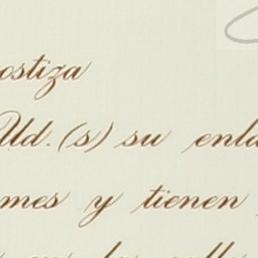 ostiza
Ud.(s) su enla
mes y tienen